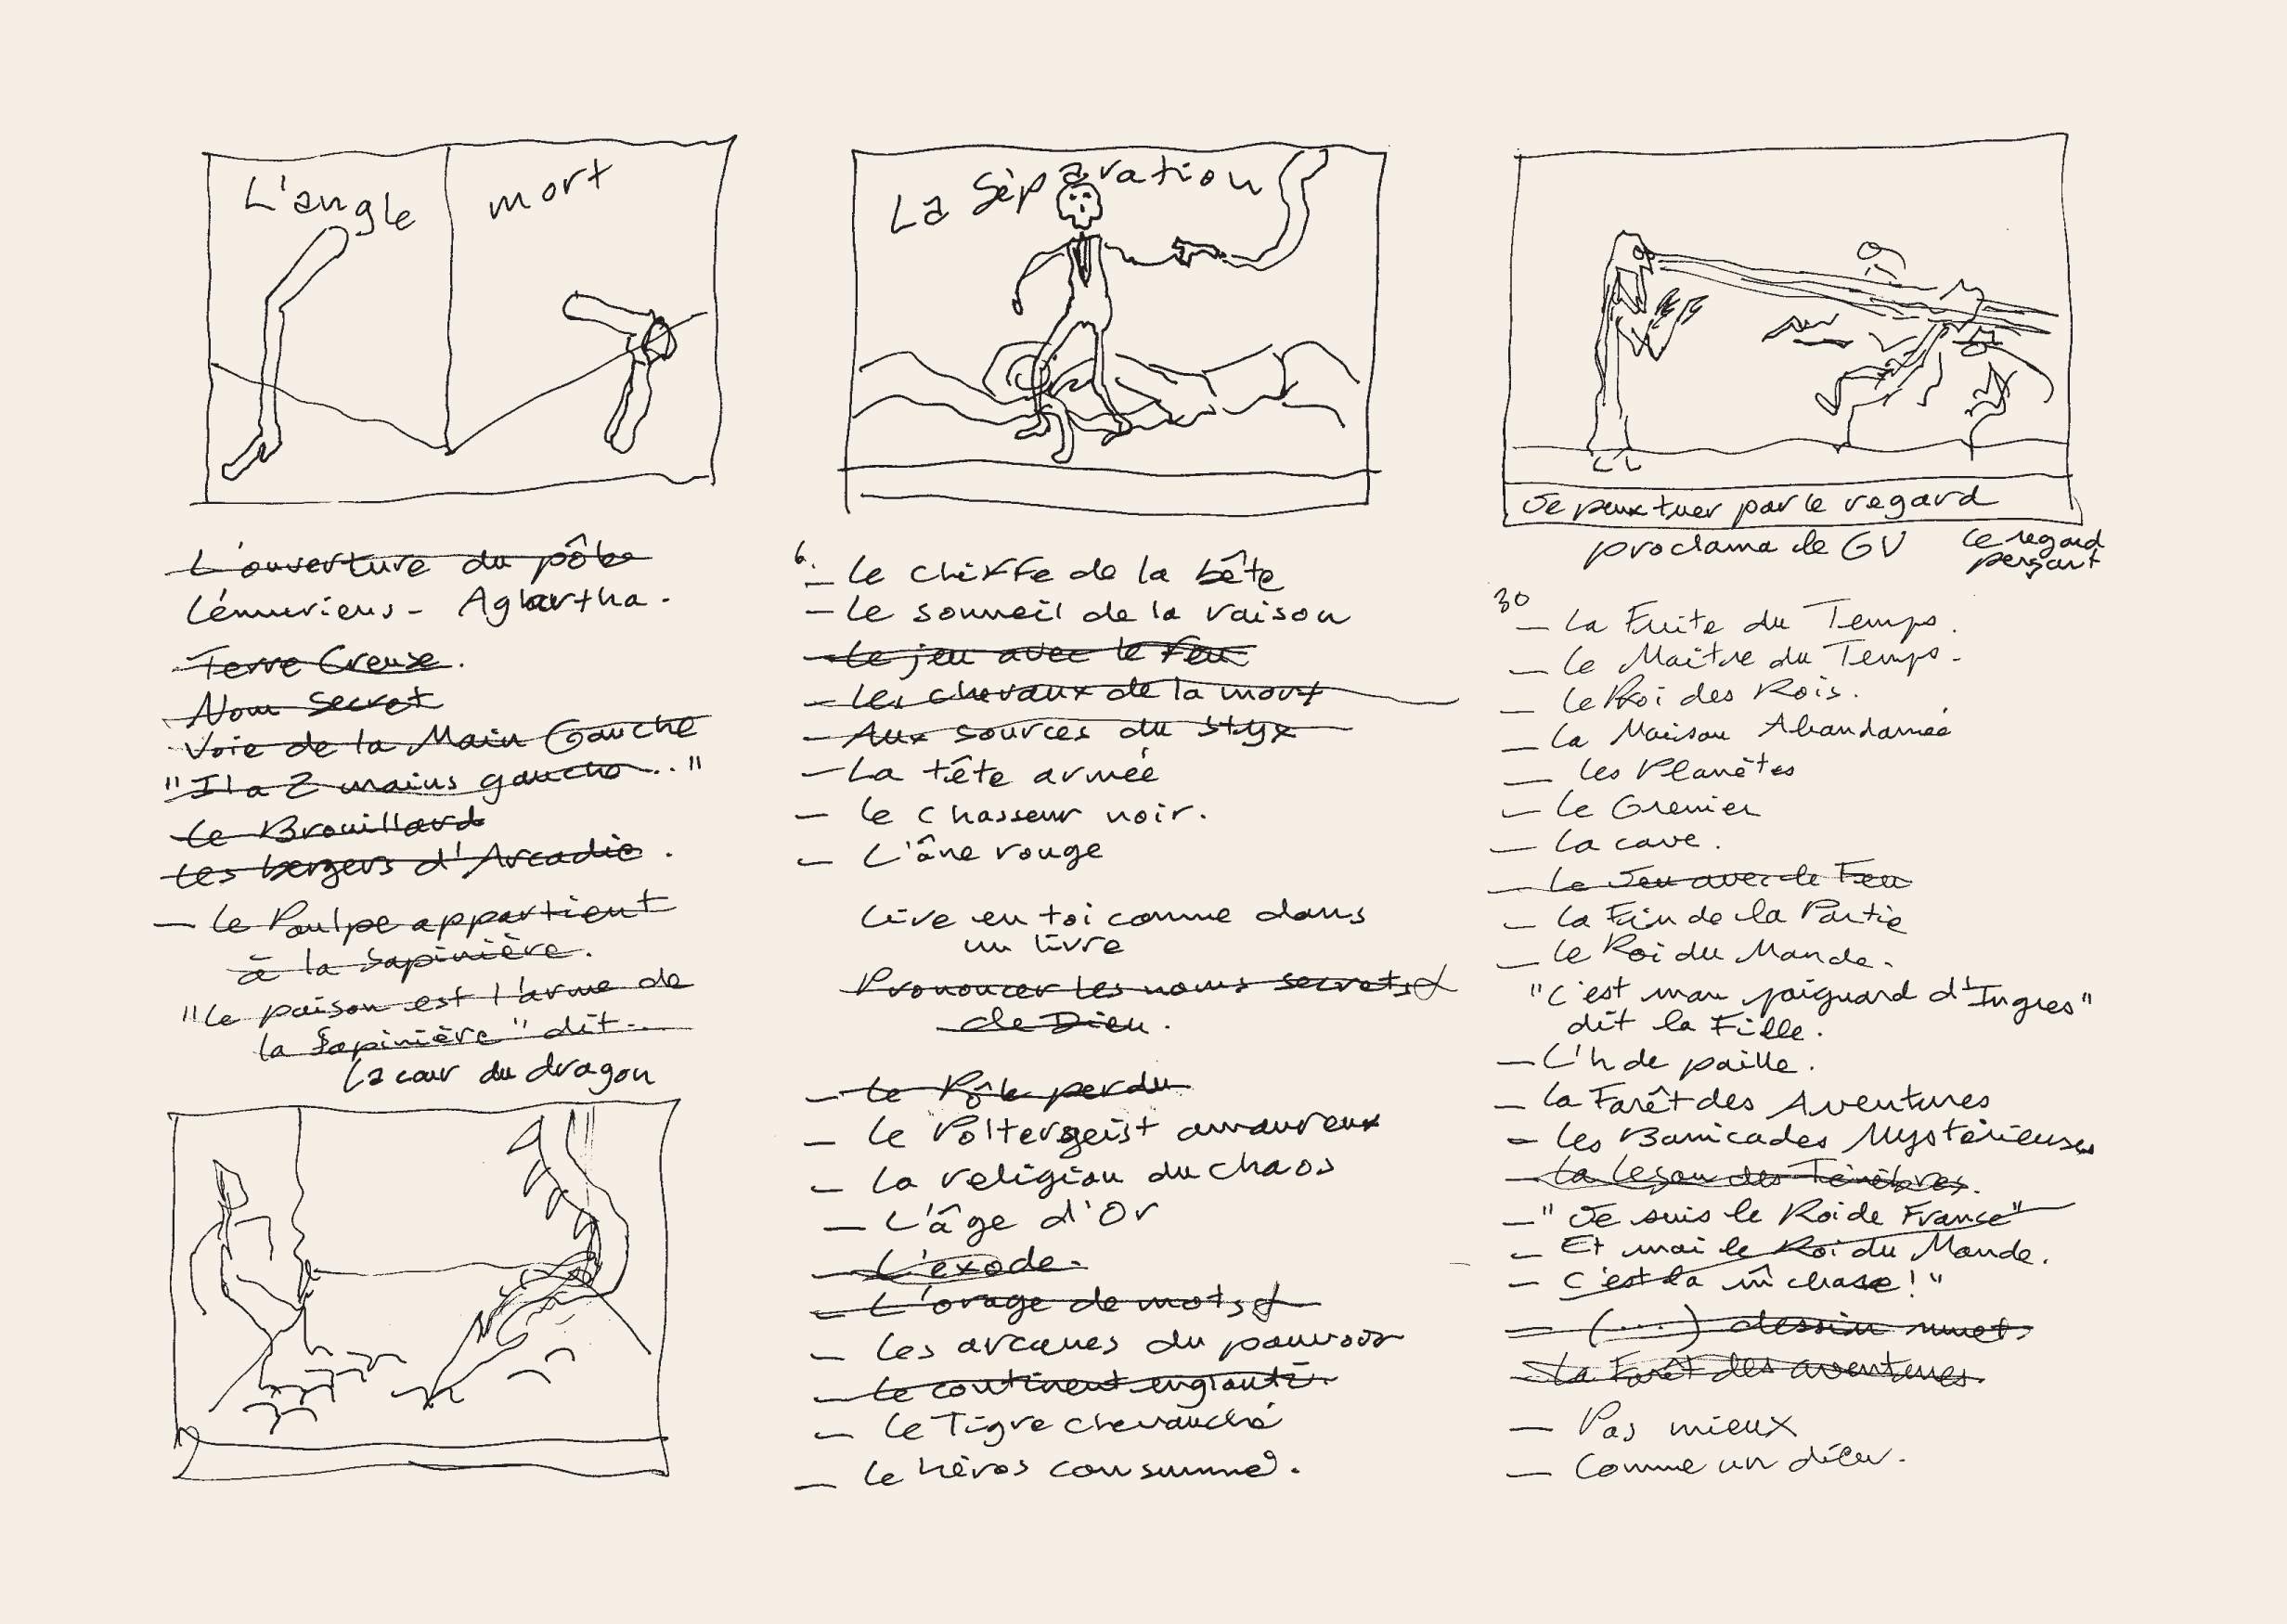 L'angle mort
L'ouverture du pôle
Lémuriens - Aghartha.
Terre Creuse.
Nom secret
Voie de la Main Gauche
"Il a 2 mains gauche..."
Le Brouillard
Les bergers d'Arcadie.
— Le Poulpe appartient
à la Sapinière.
"Le poison est l'arme de
la Sapinière" dit...
La cour du dragon
La Séparation
6.
— Le chiffre de la bête
— Le sommeil de la raison
— Le jeu avec le feu
— Les chevaux de la mort
— Aux sources du Styx
— La tête armée
— Le chasseur noir.
— L'âne rouge
Lire en toi comme dans
un livre
Prononcer les noms secrets
de Dieu.
— Le Pôle perdu
— Le Poltergeist amoureux
— La religion du chaos
— L'âge d'Or
— L'exode.
— L'orage de mots
— Les arcanes du pouvoir
— Le continent englouti.
— Le Tigre chevauché
— Le héros consummé.
Je peux tuer par le regard
proclama le GV
Le regard
perçant
30
— La Fuite du Temps.
— Le Maître du Temps.
— Le Roi des Rois.
— La Maison Abandonnée
— Les Planètes
— Le Grenier
— La cave.
— Le Jeu avec le Feu
— La Fin de la Partie
— Le Roi du Monde.
"C'est mon poignard d'Ingres"
dit la Fille.
— L'h de paille.
— La Forêt des Aventures
— Les Barricades Mystérieuses
— La Leçon des Ténèbres.
— "Je suis le Roi de France"
— Et moi le Roi du Monde.
— C'est la m̂ chose !"
— (....) dessin muet.
— La Forêt des aventures.
— Pas mieux
— Comme un